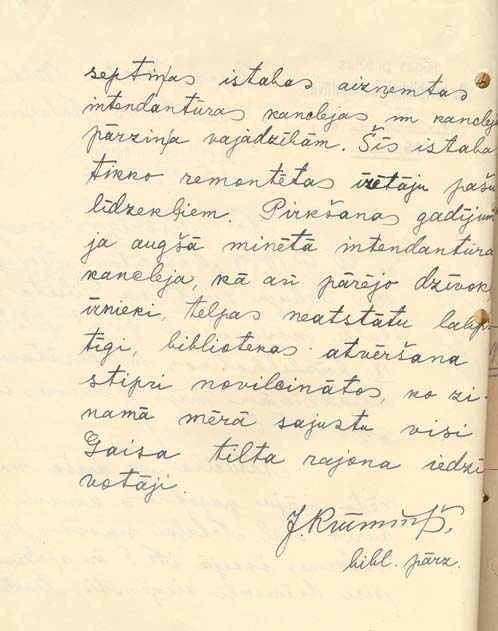 septiņas istabas aizņemtas
intendantūras kancelejas un kancelejas
pārziņa vajadzībām. Šīs istabas
tikko remontētas īrētāju pašu
līdzekļiem. Pirkšanas gadījumā
ja augšā minētā intendantūras
kanceleja, kā arī pārējo dzīvokļ
īrnieki, telpas neatstātu labprā
tīgi, bibliotekas atvēršana
stipri novilcinātos, ko zi-
namā mērā sajustu visi
Gaisa tilta rajona iedzī
votāji.
J. Krūmiņš,
bibl. pārz.